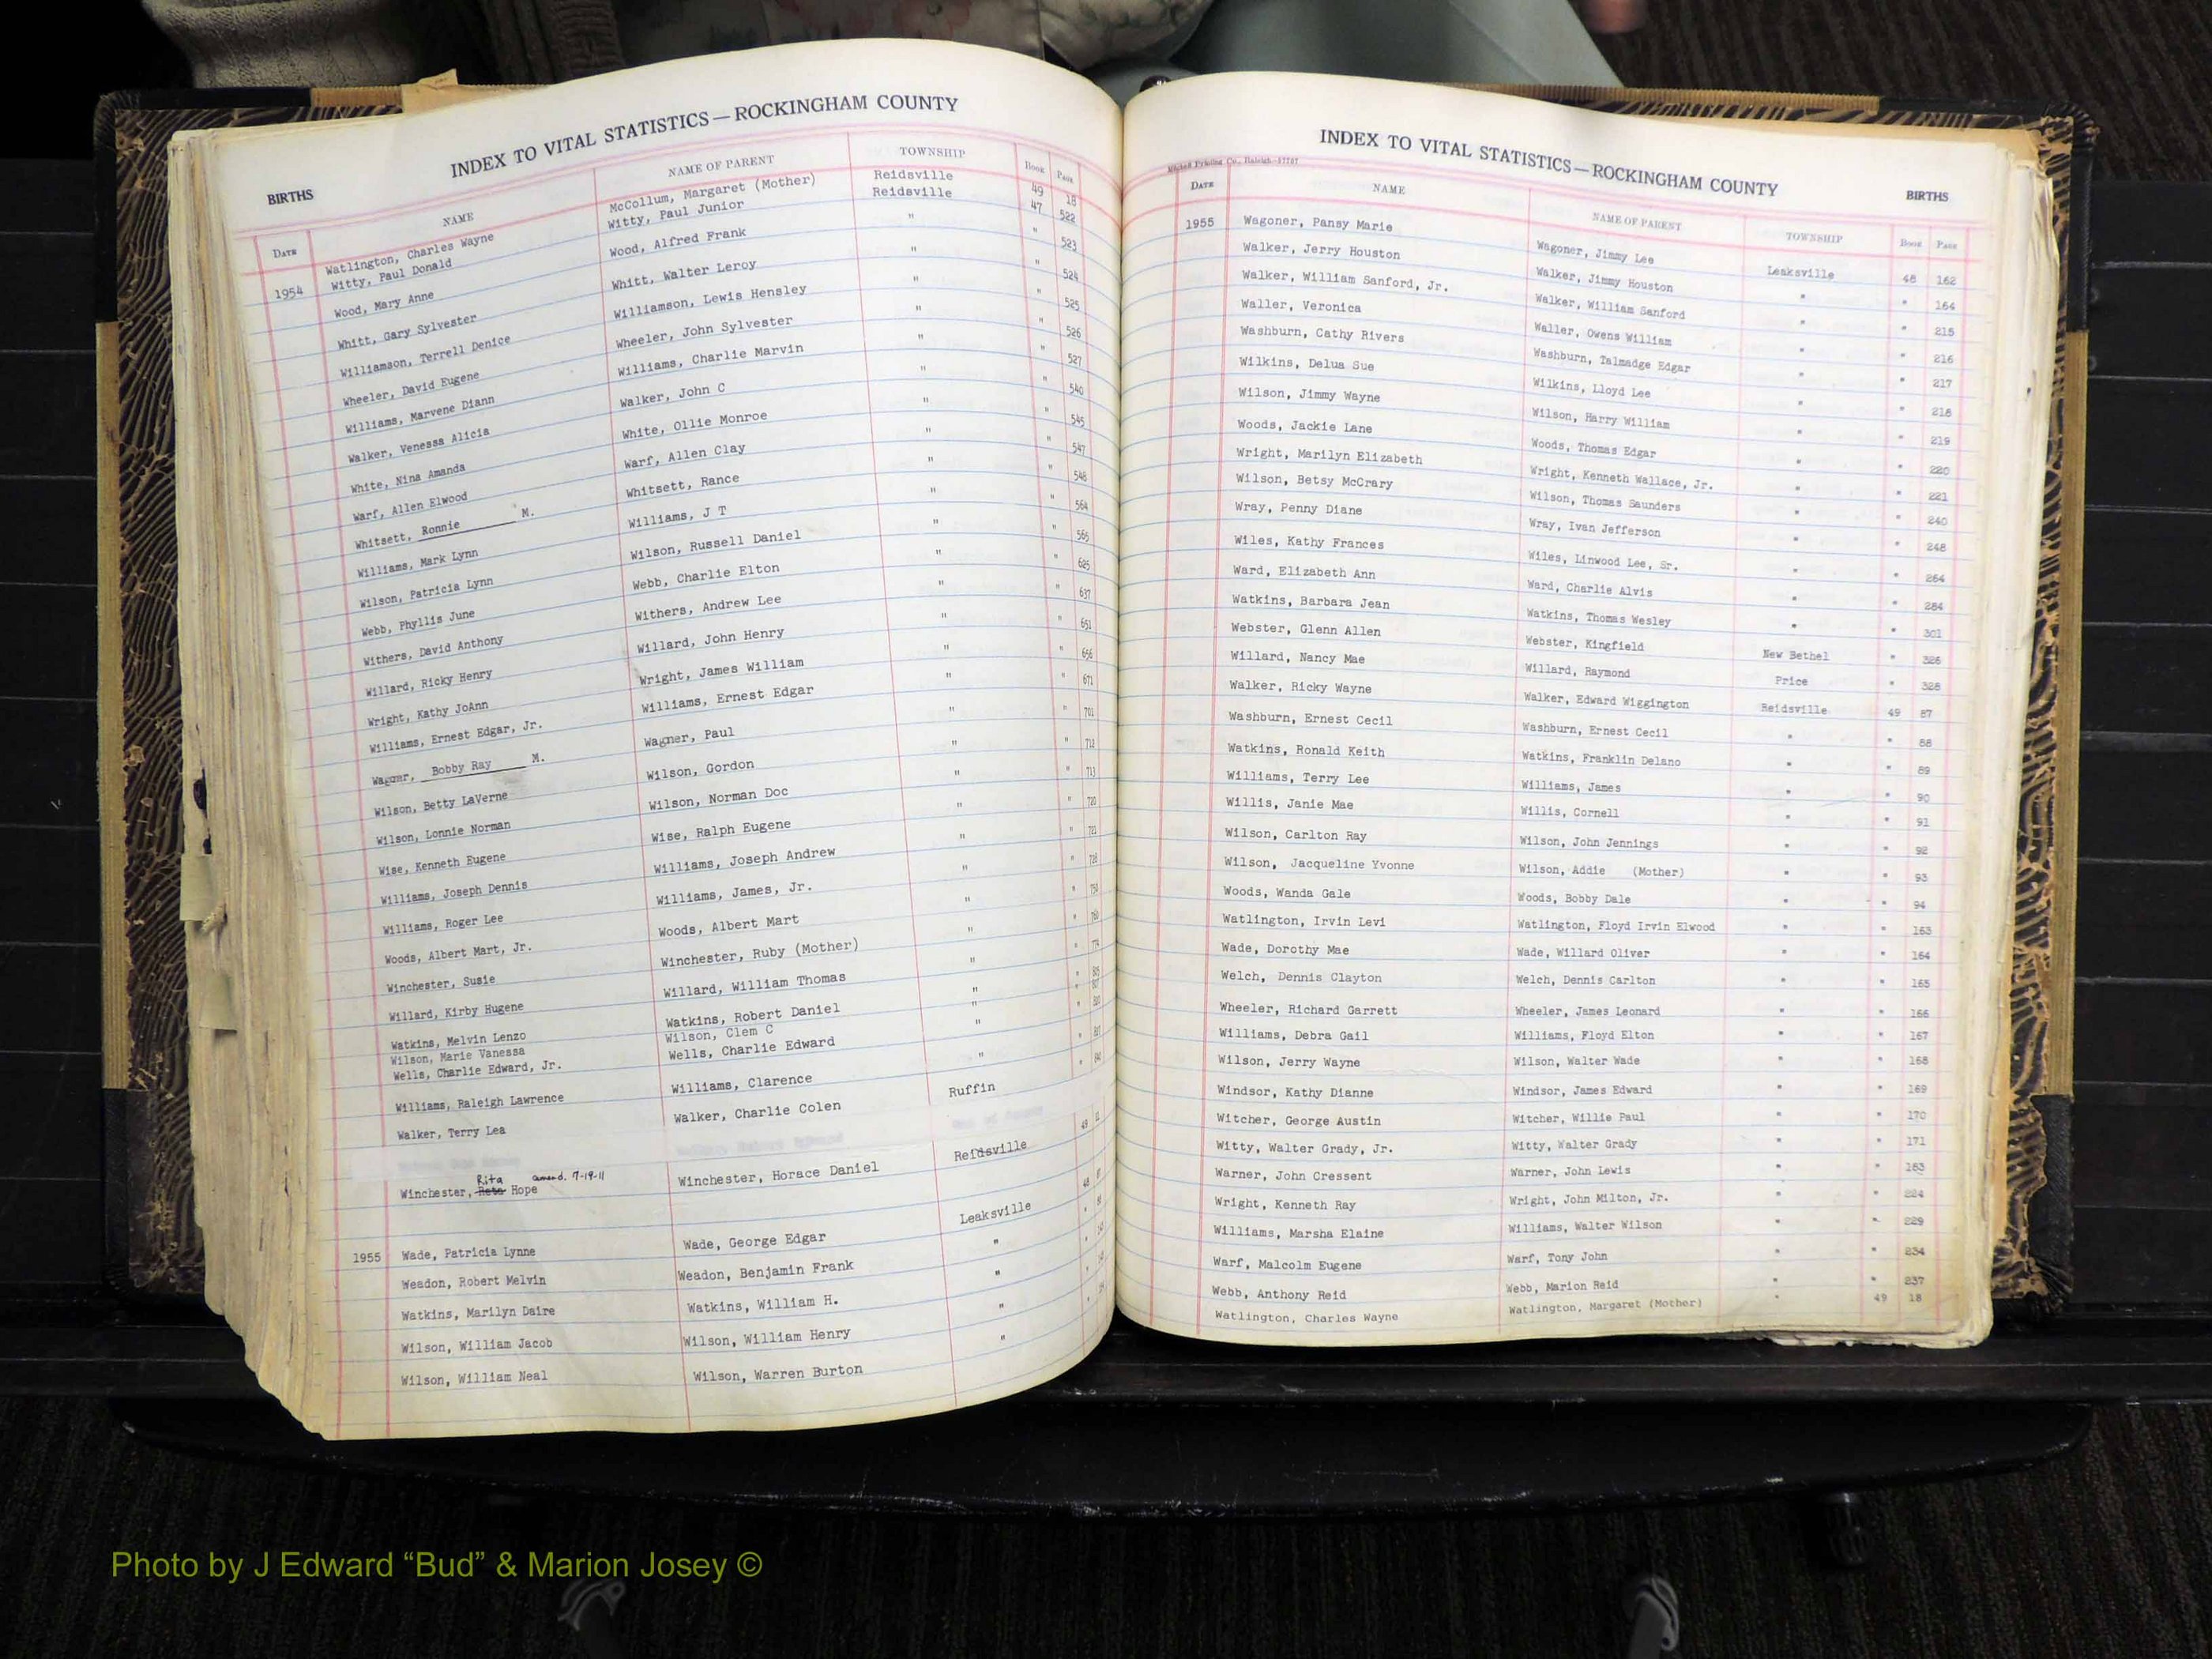 INDEX TO VITAL STATISTICS — ROCKINGHAM COUNTY
BIRTHS
DATE NAME NAME OF PARENT TOWNSHIP Book Page
Watlington, Charles Wayne McCollum, Margaret (Mother) Reidsville 49 18
1954 Witty, Paul Donald Witty, Paul Junior Reidsville 47 522
Wood, Mary Anne Wood, Alfred Frank " " 523
Whitt, Gary Sylvester Whitt, Walter Leroy " " 524
Williamson, Terrell Denice Williamson, Lewis Hensley " " 525
Wheeler, David Eugene Wheeler, John Sylvester " " 526
Williams, Marvene Diann Williams, Charlie Marvin " " 527
Walker, Venessa Alicia Walker, John C " " 540
White, Nina Amanda White, Ollie Monroe " " 545
Warf, Allen Elwood Warf, Allen Clay " " 547
Whitsett, Ronnie M. Whitsett, Rance " " 548
Williams, Mark Lynn Williams, J T " " 564
Wilson, Patricia Lynn Wilson, Russell Daniel " " 565
Webb, Phyllis June Webb, Charlie Elton " " 625
Withers, David Anthony Withers, Andrew Lee " " 637
Willard, Ricky Henry Willard, John Henry " " 651
Wright, Kathy JoAnn Wright, James William " " 656
Williams, Ernest Edgar, Jr. Williams, Ernest Edgar " " 671
Wagner, Bobby Ray M. Wagner, Paul " " 701
Wilson, Betty LaVerne Wilson, Gordon " " 712
Wilson, Lonnie Norman Wilson, Norman Doc " " 713
Wise, Kenneth Eugene Wise, Ralph Eugene " " 720
Williams, Joseph Dennis Williams, Joseph Andrew " "
Williams, Roger Lee Williams, James, Jr. " "
Woods, Albert Mart, Jr. Woods, Albert Mart " "
Winchester, Susie Winchester, Ruby (Mother) " "
Willard, Kirby Hugene Willard, William Thomas " "
Watkins, Melvin Lenzo Watkins, Robert Daniel " "
Wilson, Marie Vanessa Wilson, Clem C " "
Wells, Charlie Edward, Jr. Wells, Charlie Edward " "
Williams, Raleigh Lawrence Williams, Clarence " "
Walker, Terry Lea Walker, Charlie Colen Ruffin
Rita amend. 7-19-11
Winchester, Hope Winchester, Horace Daniel Reidsville
1955 Wade, Patricia Lynne Wade, George Edgar Leaksville
Weadon, Robert Melvin Weadon, Benjamin Frank "
Watkins, Marilyn Daire Watkins, William H. "
Wilson, William Jacob Wilson, William Henry "
Wilson, William Neal Wilson, Warren Burton "
INDEX TO VITAL STATISTICS — ROCKINGHAM COUNTY
BIRTHS
DATE NAME NAME OF PARENT TOWNSHIP Book Page
1955 Wagoner, Pansy Marie Wagoner, Jimmy Lee Leaksville 48 162
Walker, Jerry Houston Walker, Jimmy Houston " " 164
Walker, William Sanford, Jr. Walker, William Sanford " " 215
Waller, Veronica Waller, Owens William " " 216
Washburn, Cathy Rivers Washburn, Talmadge Edgar " " 217
Wilkins, Delua Sue Wilkins, Lloyd Lee " " 218
Wilson, Jimmy Wayne Wilson, Harry William " " 219
Woods, Jackie Lane Woods, Thomas Edgar " " 220
Wright, Marilyn Elizabeth Wright, Kenneth Wallace, Jr. " " 221
Wilson, Betsy McCrary Wilson, Thomas Saunders " " 240
Wray, Penny Diane Wray, Ivan Jefferson " " 248
Wiles, Kathy Frances Wiles, Linwood Lee, Sr. " " 264
Ward, Elizabeth Ann Ward, Charlie Alvis " " 284
Watkins, Barbara Jean Watkins, Thomas Wesley " " 301
Webster, Glenn Allen Webster, Kingfield New Bethel " 326
Willard, Nancy Mae Willard, Raymond Price " 328
Walker, Ricky Wayne Walker, Edward Wiggington Reidsville 49 87
Washburn, Ernest Cecil Washburn, Ernest Cecil " " 88
Watkins, Ronald Keith Watkins, Franklin Delano " " 89
Williams, Terry Lee Williams, James " " 90
Willis, Janie Mae Willis, Cornell " " 91
Wilson, Carlton Ray Wilson, John Jennings " " 92
Wilson, Jacqueline Yvonne Wilson, Addie (Mother) " " 93
Woods, Wanda Gale Woods, Bobby Dale " " 94
Watlington, Irvin Levi Watlington, Floyd Irvin Elwood " " 163
Wade, Dorothy Mae Wade, Willard Oliver " " 164
Welch, Dennis Clayton Welch, Dennis Carlton " " 165
Wheeler, Richard Garrett Wheeler, James Leonard " " 166
Williams, Debra Gail Williams, Floyd Elton " " 167
Wilson, Jerry Wayne Wilson, Walter Wade " " 168
Windsor, Kathy Dianne Windsor, James Edward " " 169
Witcher, George Austin Witcher, Willie Paul " " 170
Witty, Walter Grady, Jr. Witty, Walter Grady " " 171
Warner, John Cressent Warner, John Lewis " " 183
Wright, Kenneth Ray Wright, John Milton, Jr. " " 224
Williams, Marsha Elaine Williams, Walter Wilson " " 229
Warf, Malcolm Eugene Warf, Tony John " " 234
Webb, Anthony Reid Webb, Marion Reid " " 237
Watlington, Charles Wayne Watlington, Margaret (Mother) " 49 18
Photo by J Edward “Bud” & Marion Josey ©